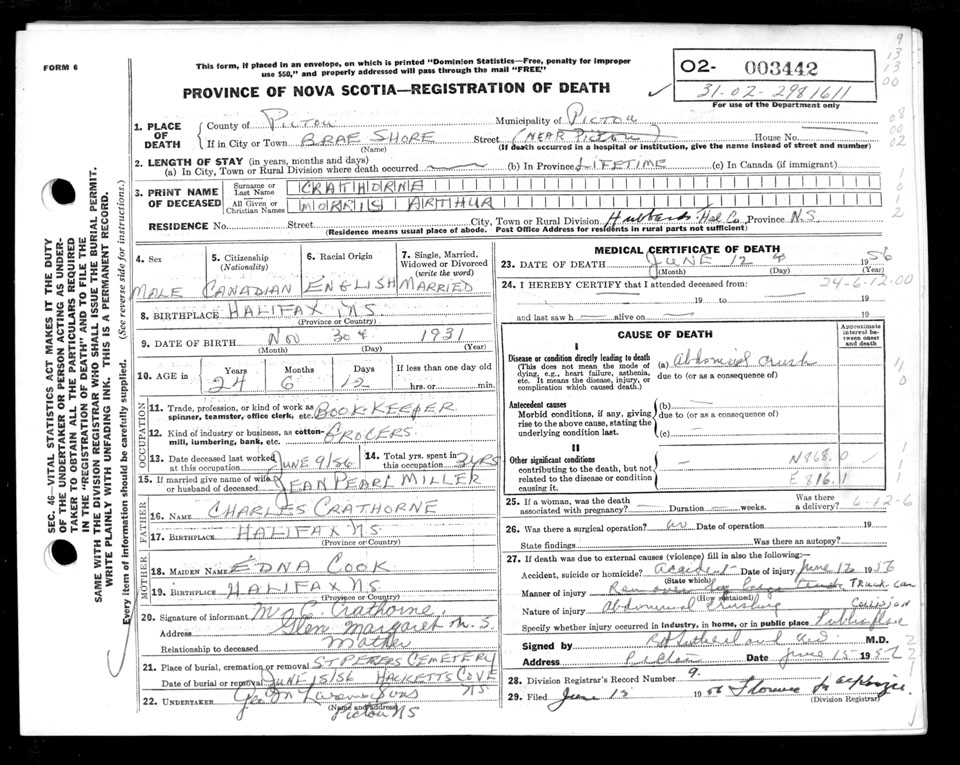 FORM 6
This form, if placed in an envelope, on which is printed "Dominion Statistics—Free, penalty for improper
use $50," and properly addressed will pass through the mail "FREE"
PROVINCE OF NOVA SCOTIA—REGISTRATION OF DEATH
O2- 003442
31-02-2981611
For use of the Department only
9
13
13
00
08
00
02
1
0
1
2
SEC. 46—VITAL STATISTICS ACT MAKES IT THE DUTY
OF THE UNDERTAKER OR PERSON ACTING AS UNDER-
TAKER TO OBTAIN ALL THE PARTICULARS REQUIRED
IN THE "REGISTRATION OF DEATH" AND TO FILE THE
SAME WITH THE DIVISION REGISTRAR WHO SHALL ISSUE THE BURIAL PERMIT.
WRITE PLAINLY WITH UNFADING INK. THIS IS A PERMANENT RECORD.
Every item of information should be carefully supplied. (See reverse side for instructions.)
1. PLACE OF DEATH
County of Pictou Municipality of Pictou
If in City or Town BRAE SHORE Street (NEAR PICTOU) House No.
(Name) (If death occurred in a hospital or institution, give the name instead of street and number)
2. LENGTH OF STAY (in years, months and days)
(a) In City, Town or Rural Division where death occurred (b) In Province LIFETIME (c) In Canada (if immigrant)
3. PRINT NAME OF DECEASED
Surname or Last Name CRATHORNE
All Given or Christian Names MORRIS ARTHUR
RESIDENCE No. Street City, Town or Rural Division Hubbards Hal. Co. Province N.S.
(Residence means usual place of abode. Post Office Address for residents in rural parts not sufficient)
4. Sex
MALE
5. Citizenship
(Nationality)
CANADIAN
6. Racial Origin
ENGLISH
7. Single, Married,
Widowed or Divorced
(write the word)
MARRIED
8. BIRTHPLACE HALIFAX NS
(Province or Country)
9. DATE OF BIRTH Nov 30th 1931
(Month) (Day) (Year)
10. AGE in Years 24 Months 6 Days 12 If less than one day old
hrs. or min.
OCCUPATION
11. Trade, profession, or kind of work as
spinner, teamster, office clerk, etc. BOOKKEEPER
12. Kind of industry or business, as cotton-
mill, lumbering, bank, etc. GROCERS
13. Date deceased last worked
at this occupation JUNE 9/56
14. Total yrs. spent in
this occupation 2 YRS
15. If married give name of wife
or husband of deceased JEAN PEARL MILLER
FATHER
16. NAME CHARLES CRATHORNE
17. BIRTHPLACE HALIFAX NS
(Province or Country)
MOTHER
18. MAIDEN NAME EDNA COOK
19. BIRTHPLACE HALIFAX NS
(Province or Country)
20. Signature of informant Mrs C. Crathorne.
Address Glen Margaret N.S.
Relationship to deceased Mother
21. Place of burial, cremation or removal ST PETERS CEMETERY
Date of burial or removal JUNE 15/56 HACKETTS COVE
NS
22. UNDERTAKER
(Name and address)
Pictou NS
MEDICAL CERTIFICATE OF DEATH
23. DATE OF DEATH JUNE 12 th 1956
(Month) (Day) (Year)
24. I HEREBY CERTIFY that I attended deceased from: 24-6-12-00
19 to 19
and last saw h alive on 19
CAUSE OF DEATH
Approximate
interval between
onset
and death
I
Disease or condition directly leading to death
(This does not mean the mode of
dying, e.g., heart failure, asthenia,
etc. It means the disease, injury, or
complication which caused death.)
(a) Abdominal crush
due to (or as a consequence of)
Antecedent causes
Morbid conditions, if any, giving
rise to the above cause, stating the
underlying condition last.
(b)
due to (or as a consequence of)
(c)
II
Other significant conditions
contributing to the death, but not
related to the disease or condition
causing it.
N868.0
E816.1
25. If a woman, was the death
associated with pregnancy? Duration weeks. Was there
a delivery? 6-12-6
26. Was there a surgical operation? no Date of operation 19
State findings Was there an autopsy?
27. If death was due to external causes (violence) fill in also the following:—
Accident, suicide or homicide? accident Date of injury June 12 1956
(State which)
Manner of injury Ran over TRUCK CAR
(How sustained) COLLISION
Nature of injury Abdominal Crushing
Specify whether injury occurred in industry, in home, or in public place Public place
Signed by R H Sutherland M.D.
Address Pictou Date June 15 195
28. Division Registrar's Record Number 9.
29. Filed June 15 1956 Florence
(Division Registrar)